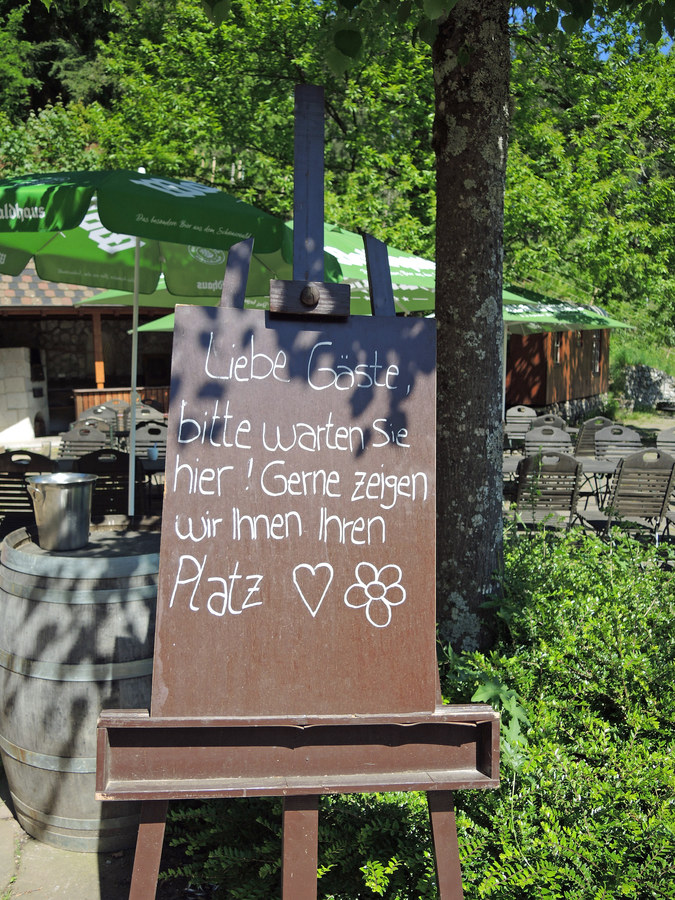 aldhaus
Das besondere Bier aus dem Schwarzwald
Liebe Gäste,
bitte warten Sie
hier! Gerne zeigen
wir Ihnen Ihren
Platz